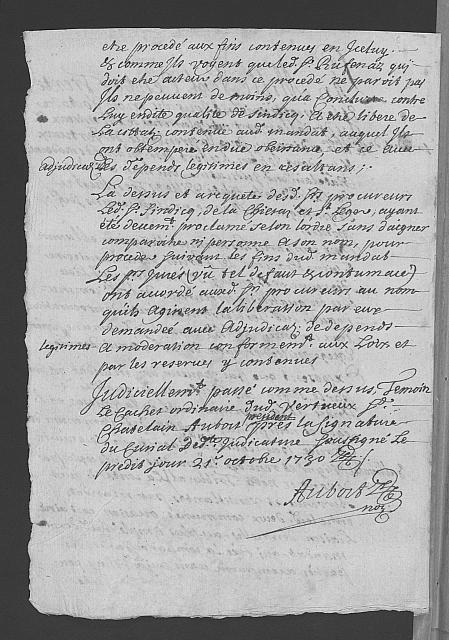 etre procedé aux fins contenues en Iceluy.
& comme Ils voyent que led. Sr. Rufenaz qui
doit etre acteur dans ce procedé ne paroit pas
Ils ne peuvent de moins, qu'a Conclure contre
Luy en dite qualité de Sindicq, A etre liberé de
La contenue aud. mandat, auquel Ils
ont obtemperé en due obeissance et ce avec
adjudicaõn des depends legitimes en resultans;
La dessus et a requete desd. Srs procureurs
Led. Sr. Sindicq, de la ayant
eté deuemt. proclamé selon lordre sans daigner
comparoitre ni personne a son nom, pour
proceder suivant les fins dud. mandat
Les Srs Jures (vû tel defaut & contumace)
ont acordé auxd. Srs procureurs au nom
qu'ils agissent la liberation par eux
demandée avec Adjudicaõn de depends
Legitimes A moderation conformemt. aux Loix et
par les reserves y contenues
Judiciellemt. passé comme dessus, Temoin
Le Cachet ordinaire dud. vertueux Sr.
Chatelain Aubort president Près la signature
du Curial de dte. Judicature Soussigné Le
predit jour 21e. octobre 1730
Aubort
not.